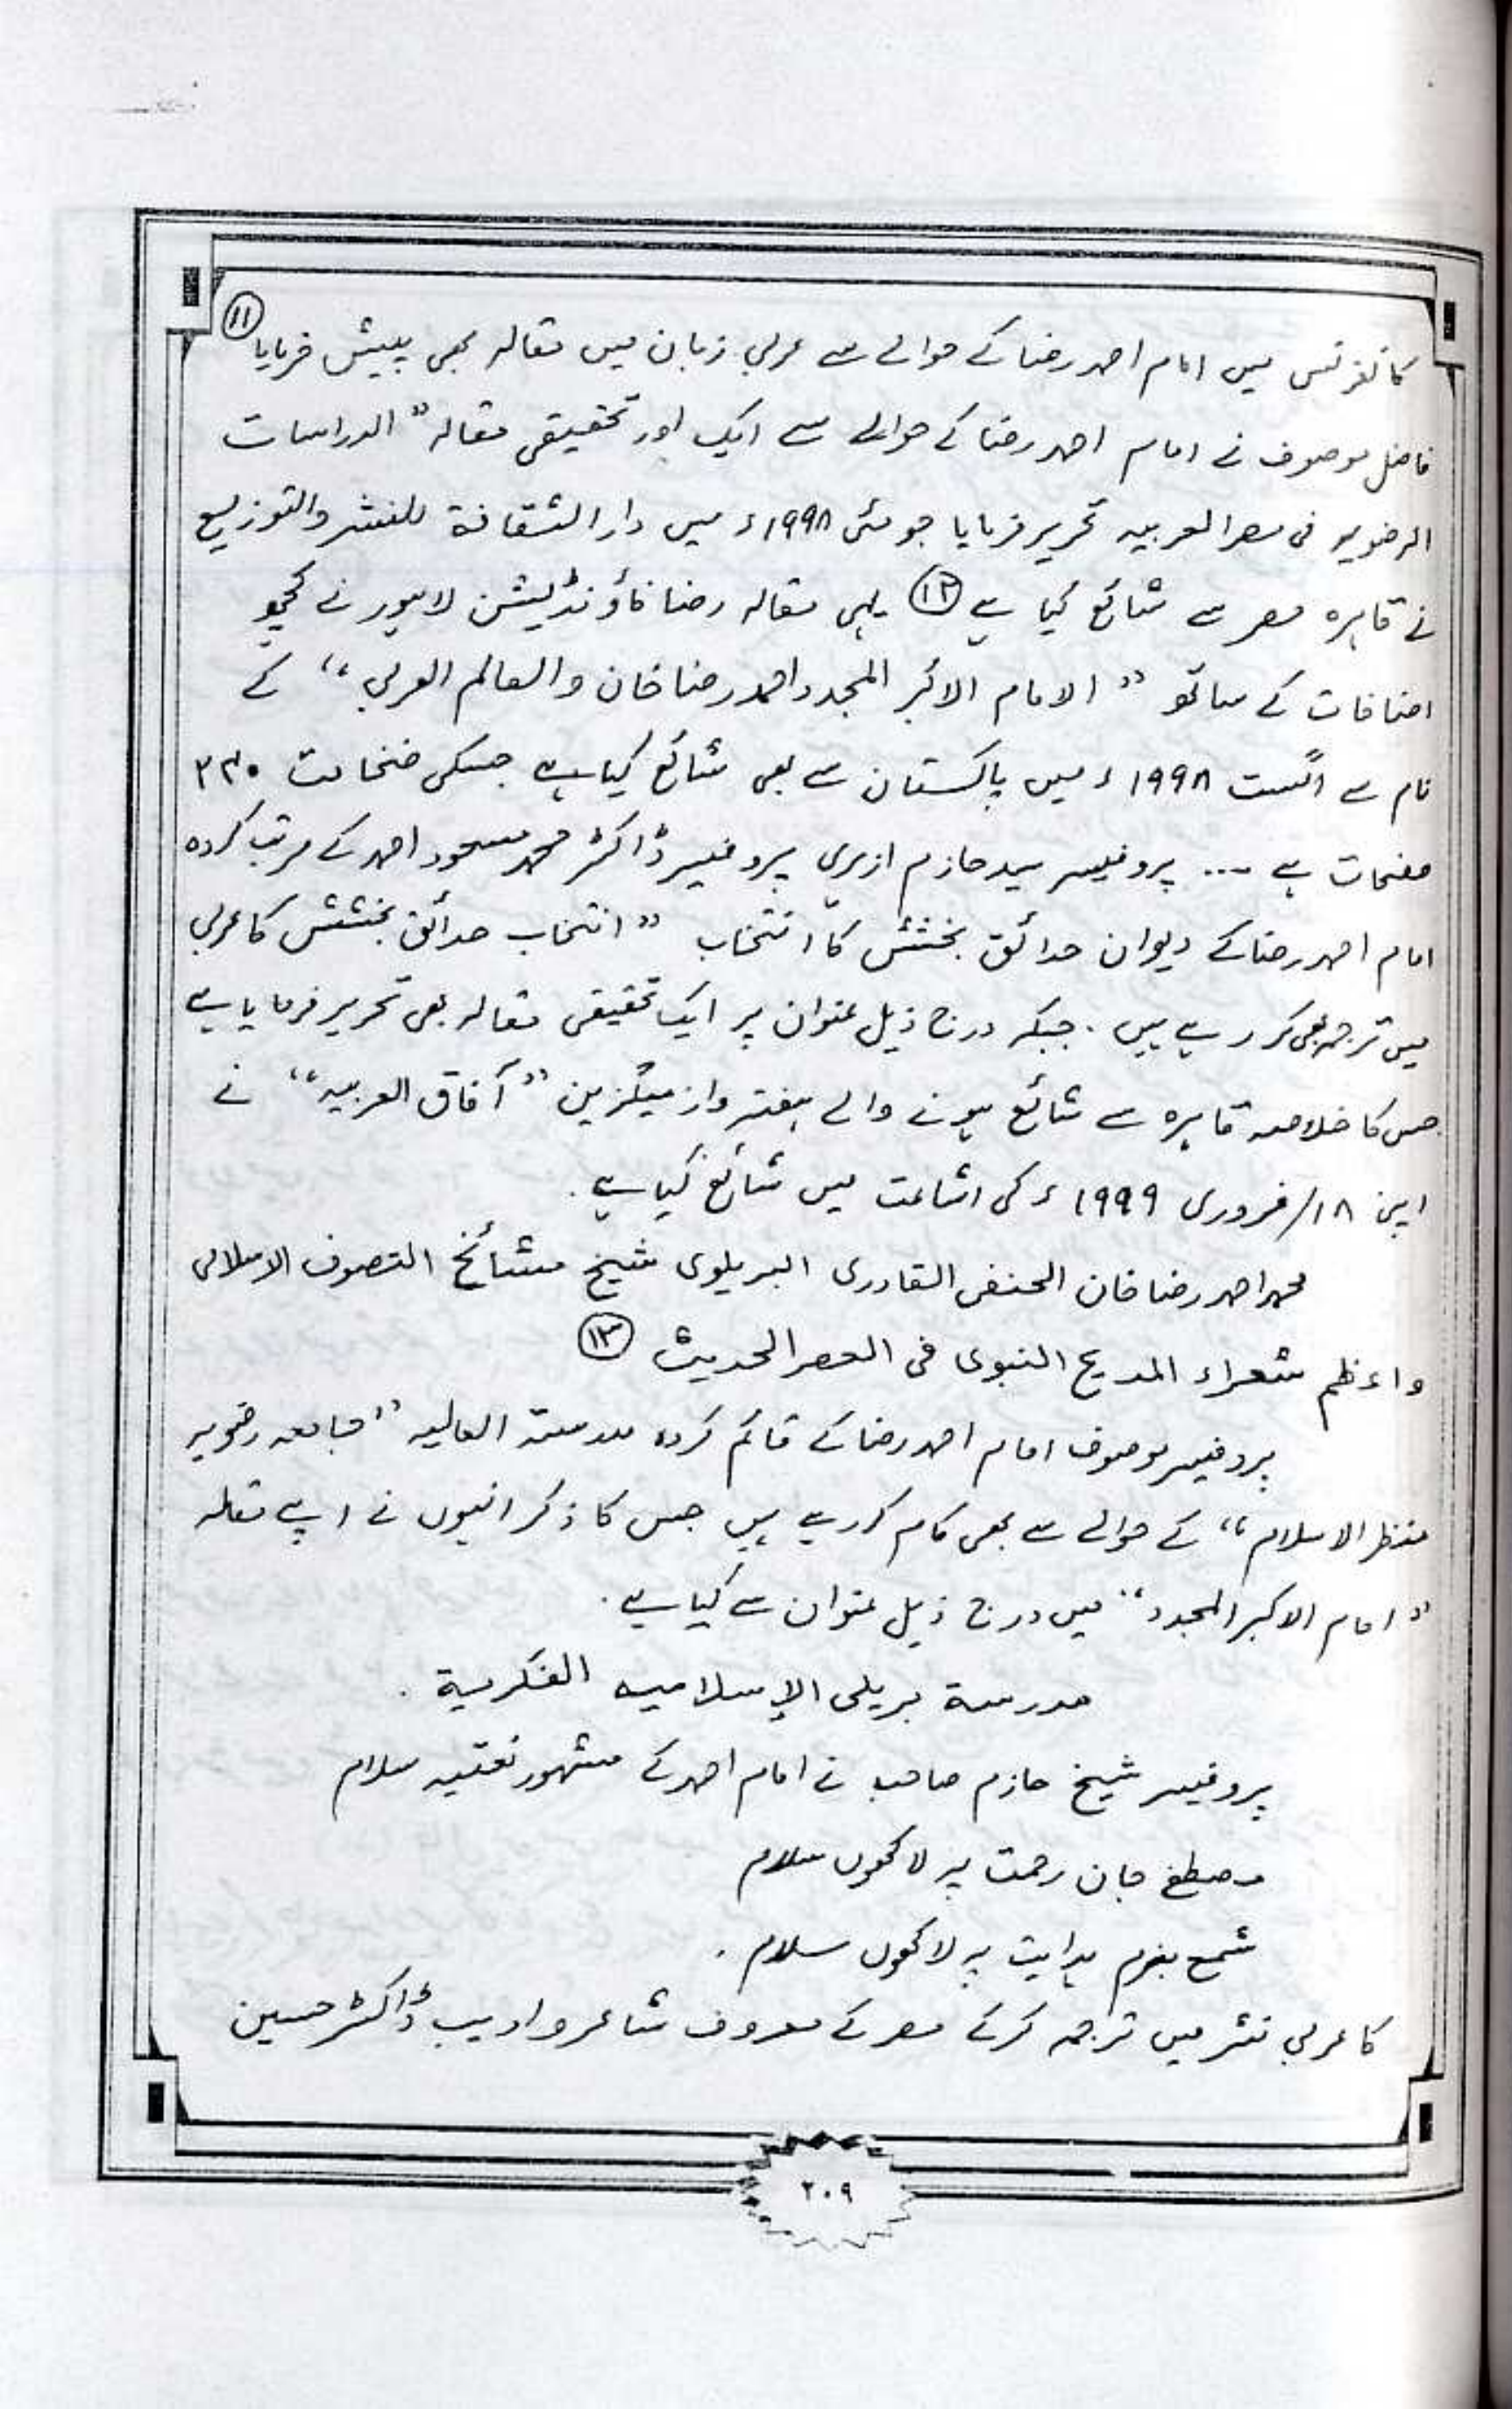 کانفرنس میں امام احمد رضا کے حوالے سے عربی زبان میں مقالہ بھی پیش فرمایا ۱۱
فاضل موصوف نے امام احمد رضا کے حوالے سے ایک اور تحقیقی مقالہ " الدراسات
الرضویہ فی مصر العربیہ تحریر فرمایا جو مئی ۱۹۹۸ء میں دار الثقافۃ للنشر والتوزیع
نے قاہرہ مصر سے شائع کیا ہے ۱۲ یہی مقالہ رضا فاؤنڈیشن لاہور نے کچھ
اضافات کے ساتھ " الامام الاکبر المجدد احمد رضا خان والعالم العربی " کے
نام سے اگست ۱۹۹۸ء میں پاکستان سے بھی شائع کیا ہے جسکی ضخامت ۲۳۰
صفحات ہے ... پروفیسر سید حازم ازہری پروفیسر ڈاکٹر محمد مسعود احمد کے مرتب کردہ
امام احمد رضا کے دیوان حدائق بخشش کا انتخاب " انتخاب حدائق بخشش کا عربی
میں ترجمہ بھی کر رہے ہیں . جبکہ درج ذیل عنوان پر ایک تحقیقی مقالہ بھی تحریر فرمایا ہے
جس کا خلاصہ قاہرہ سے شائع ہونے والے ہفتہ وار میگزین " آفاق العربیہ " نے
اپنی ۱۸/فروری ۱۹۹۹ء کی اشاعت میں شائع کیا ہے .
محمد احمد رضا خان الحنفی القادری البریلوی شیخ مشائخ التصوف الاسلامی
واعظم شعراء المدیح النبوی فی العصر الحدیث ۱۳
پروفیسر موصوف امام احمد رضا کے قائم کردہ مدرستہ العالیہ " جامعہ رضویہ
منظر الاسلام " کے حوالے سے بھی کام کر رہے ہیں جس کا ذکر انہوں نے اپنے مقالہ
" امام الاکبر المجدد " میں درج ذیل عنوان سے کیا ہے .
مدرسة بریلی الإسلامیہ الفکریة .
پروفیسر شیخ حازم صاحب نے امام احمد کے مشہور نعتیہ سلام
مصطفے جان رحمت پہ لاکھوں سلام
شمع بزم ہدایت پہ لاکھوں سلام .
کا عربی نثر میں ترجمہ کرکے مصر کے معروف شاعر و ادیب ڈاکٹر حسین
۲۰۹